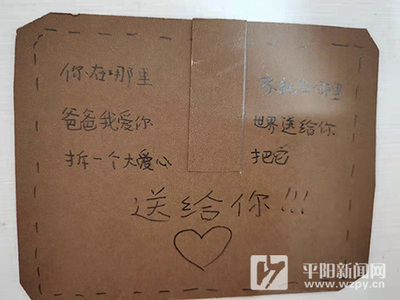 你在哪里
家就在哪里
爸爸我爱你
世界送给你
拆一个大爱心
把它
送给你!!!
平阳新闻网
www.wzpy.cn